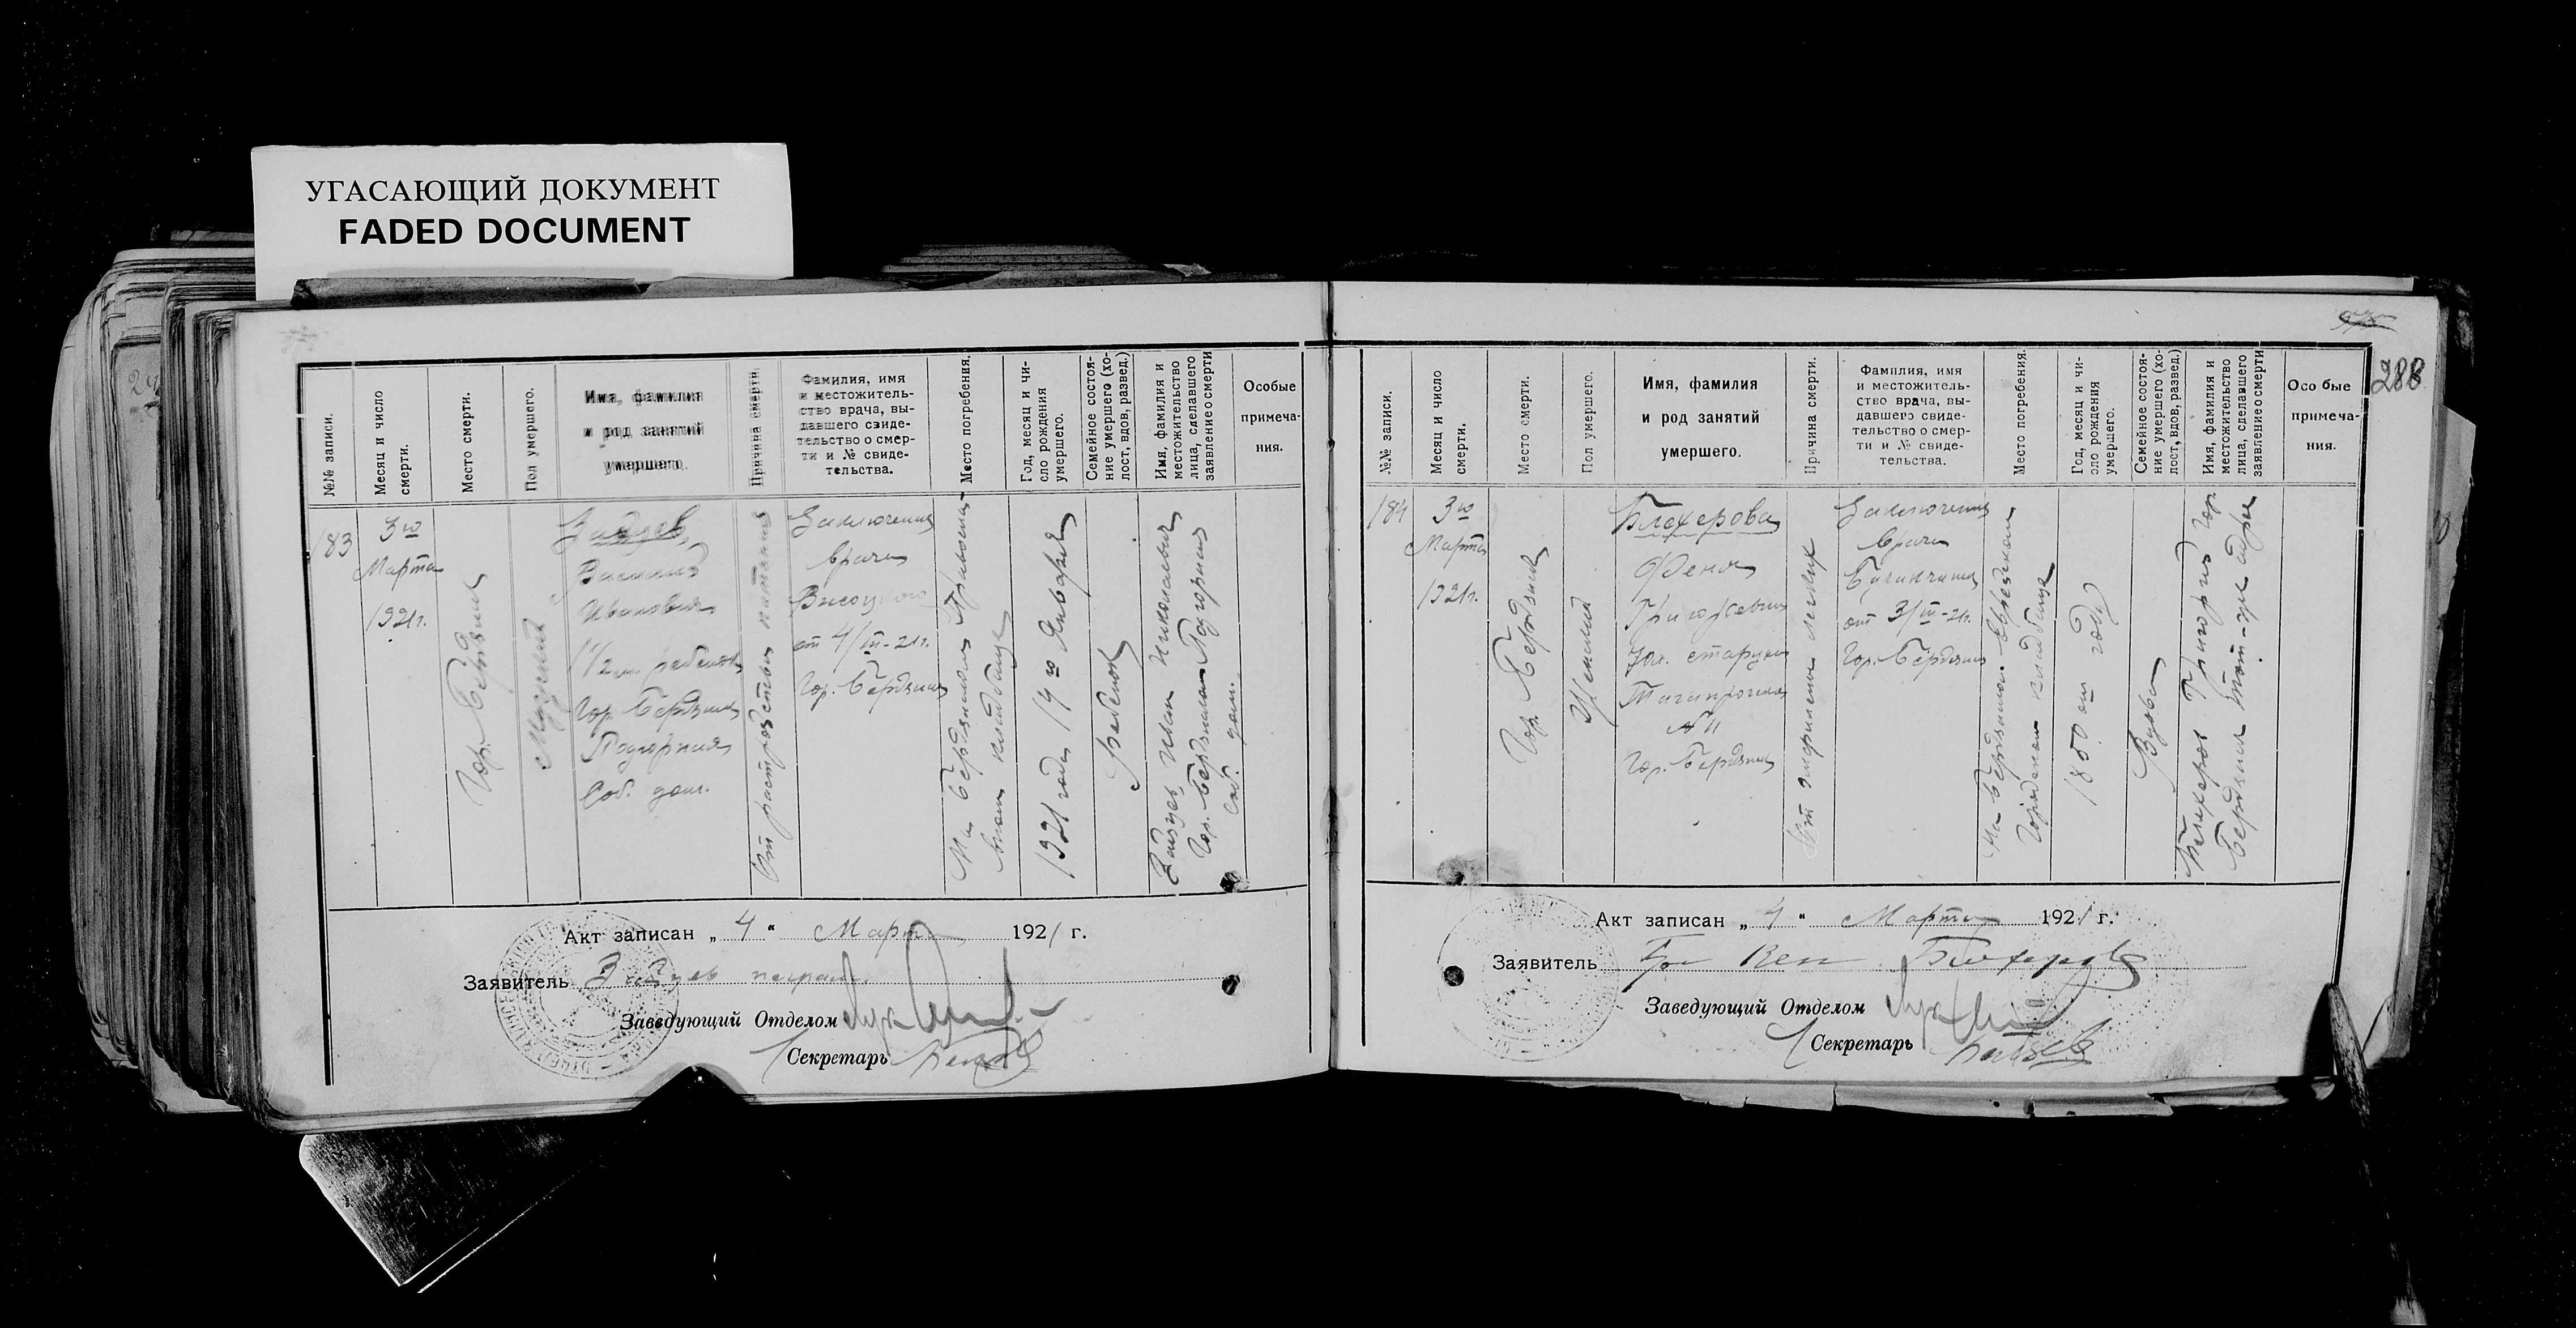 УГАСАЮЩИЙ ДОКУМЕНТ
FADED DOCUMENT
№№ записи.
Месяц и число
смерти.
Место смерти.
Пол умершего.
Имя, фамилия
и род занятий
умершего.
Причина смерти.
Фамилия, имя
и местожитель-
ство врача, вы-
давшего свиде-
тельство о смер-
ти и № свиде-
тельства.
Место погребения.
Год, месяц и чи-
сло рождения
умершего.
Семейное состоя-
ние умершего (хо-
лост, вдов, развед.)
Имя, фамилия и
местожительство
лица, сделавшего
заявление о смерти
Особые
примеча-
ния.
183
3го
Марта
1921г.
Гор. Бердянск
Мужской
Василий
Иванович
1 1/2 м. ребенок
Гор. Бердянск
Подгорная
Соб. дом.
От расстройства питания
Заключение
врача
Высоцкого
от 4/III-21г.
Гор. Бердянск
На Бердянском Православном
кладбище
1921 года 14го Января
Ребенок
Иван Николаевич
Гор. Бердянск Подгорная
Соб. дом.
Акт записан „ 4 " Марта 1921 г.
Заявитель
Заведующий Отделом
Секретарь
288
№№ записи.
Месяц и число
смерти.
Место смерти.
Пол умершего.
Имя, фамилия
и род занятий
умершего.
Причина смерти.
Фамилия, имя
и местожитель-
ство врача, вы-
давшего свиде-
тельство о смер-
ти и № свиде-
тельства.
Место погребения.
Год, месяц и чи-
сло рождения
умершего.
Семейное состоя-
ние умершего (хо-
лост, вдов, развед.)
Имя, фамилия и
местожительство
лица, сделавшего
заявление о смерти
Осо бые
примеча-
ния.
184
3го
Марта
1921г.
Гор. Бердянск
Женский
Блехерова
Феня
Григорьевна
старуха
Гор. Бердянск
От эмфиземы легких
Заключение
врача
от 3/III-21г.
Гор. Бердянск
На Бердянском Еврейском
Городском кладбище
1850 года
Вдова
Блехеров Григорий Гор.
Бердянск тот-же адрес
Акт записан „ 4 " Марта 1921 г.
Заявитель
Заведующий Отделом
Секретарь